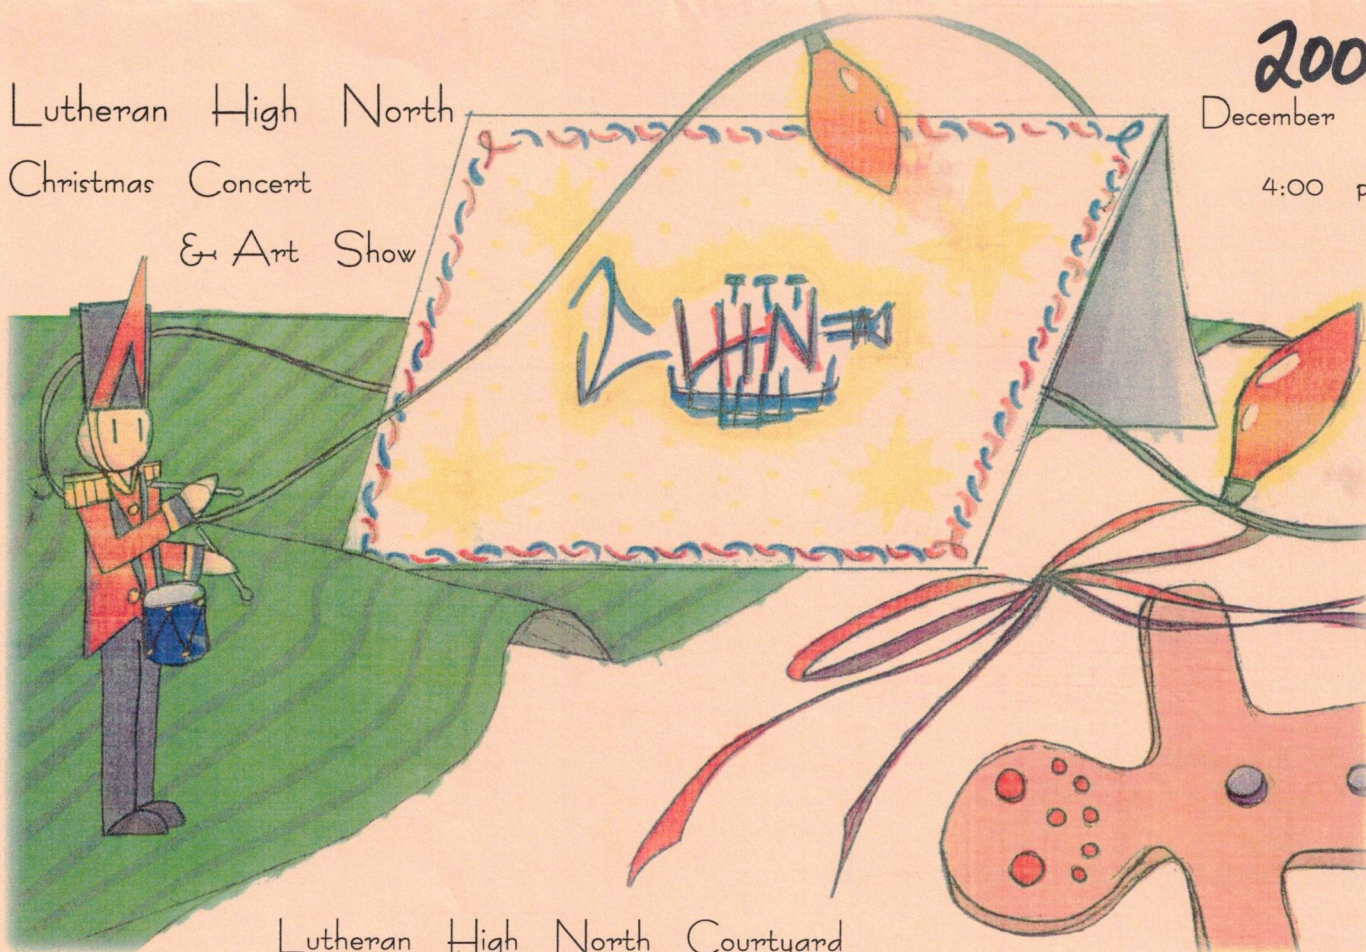 Lutheran High North
Christmas Concert
& Art Show
200
December
4:00 p
LHN
Lutheran High North Courtyard